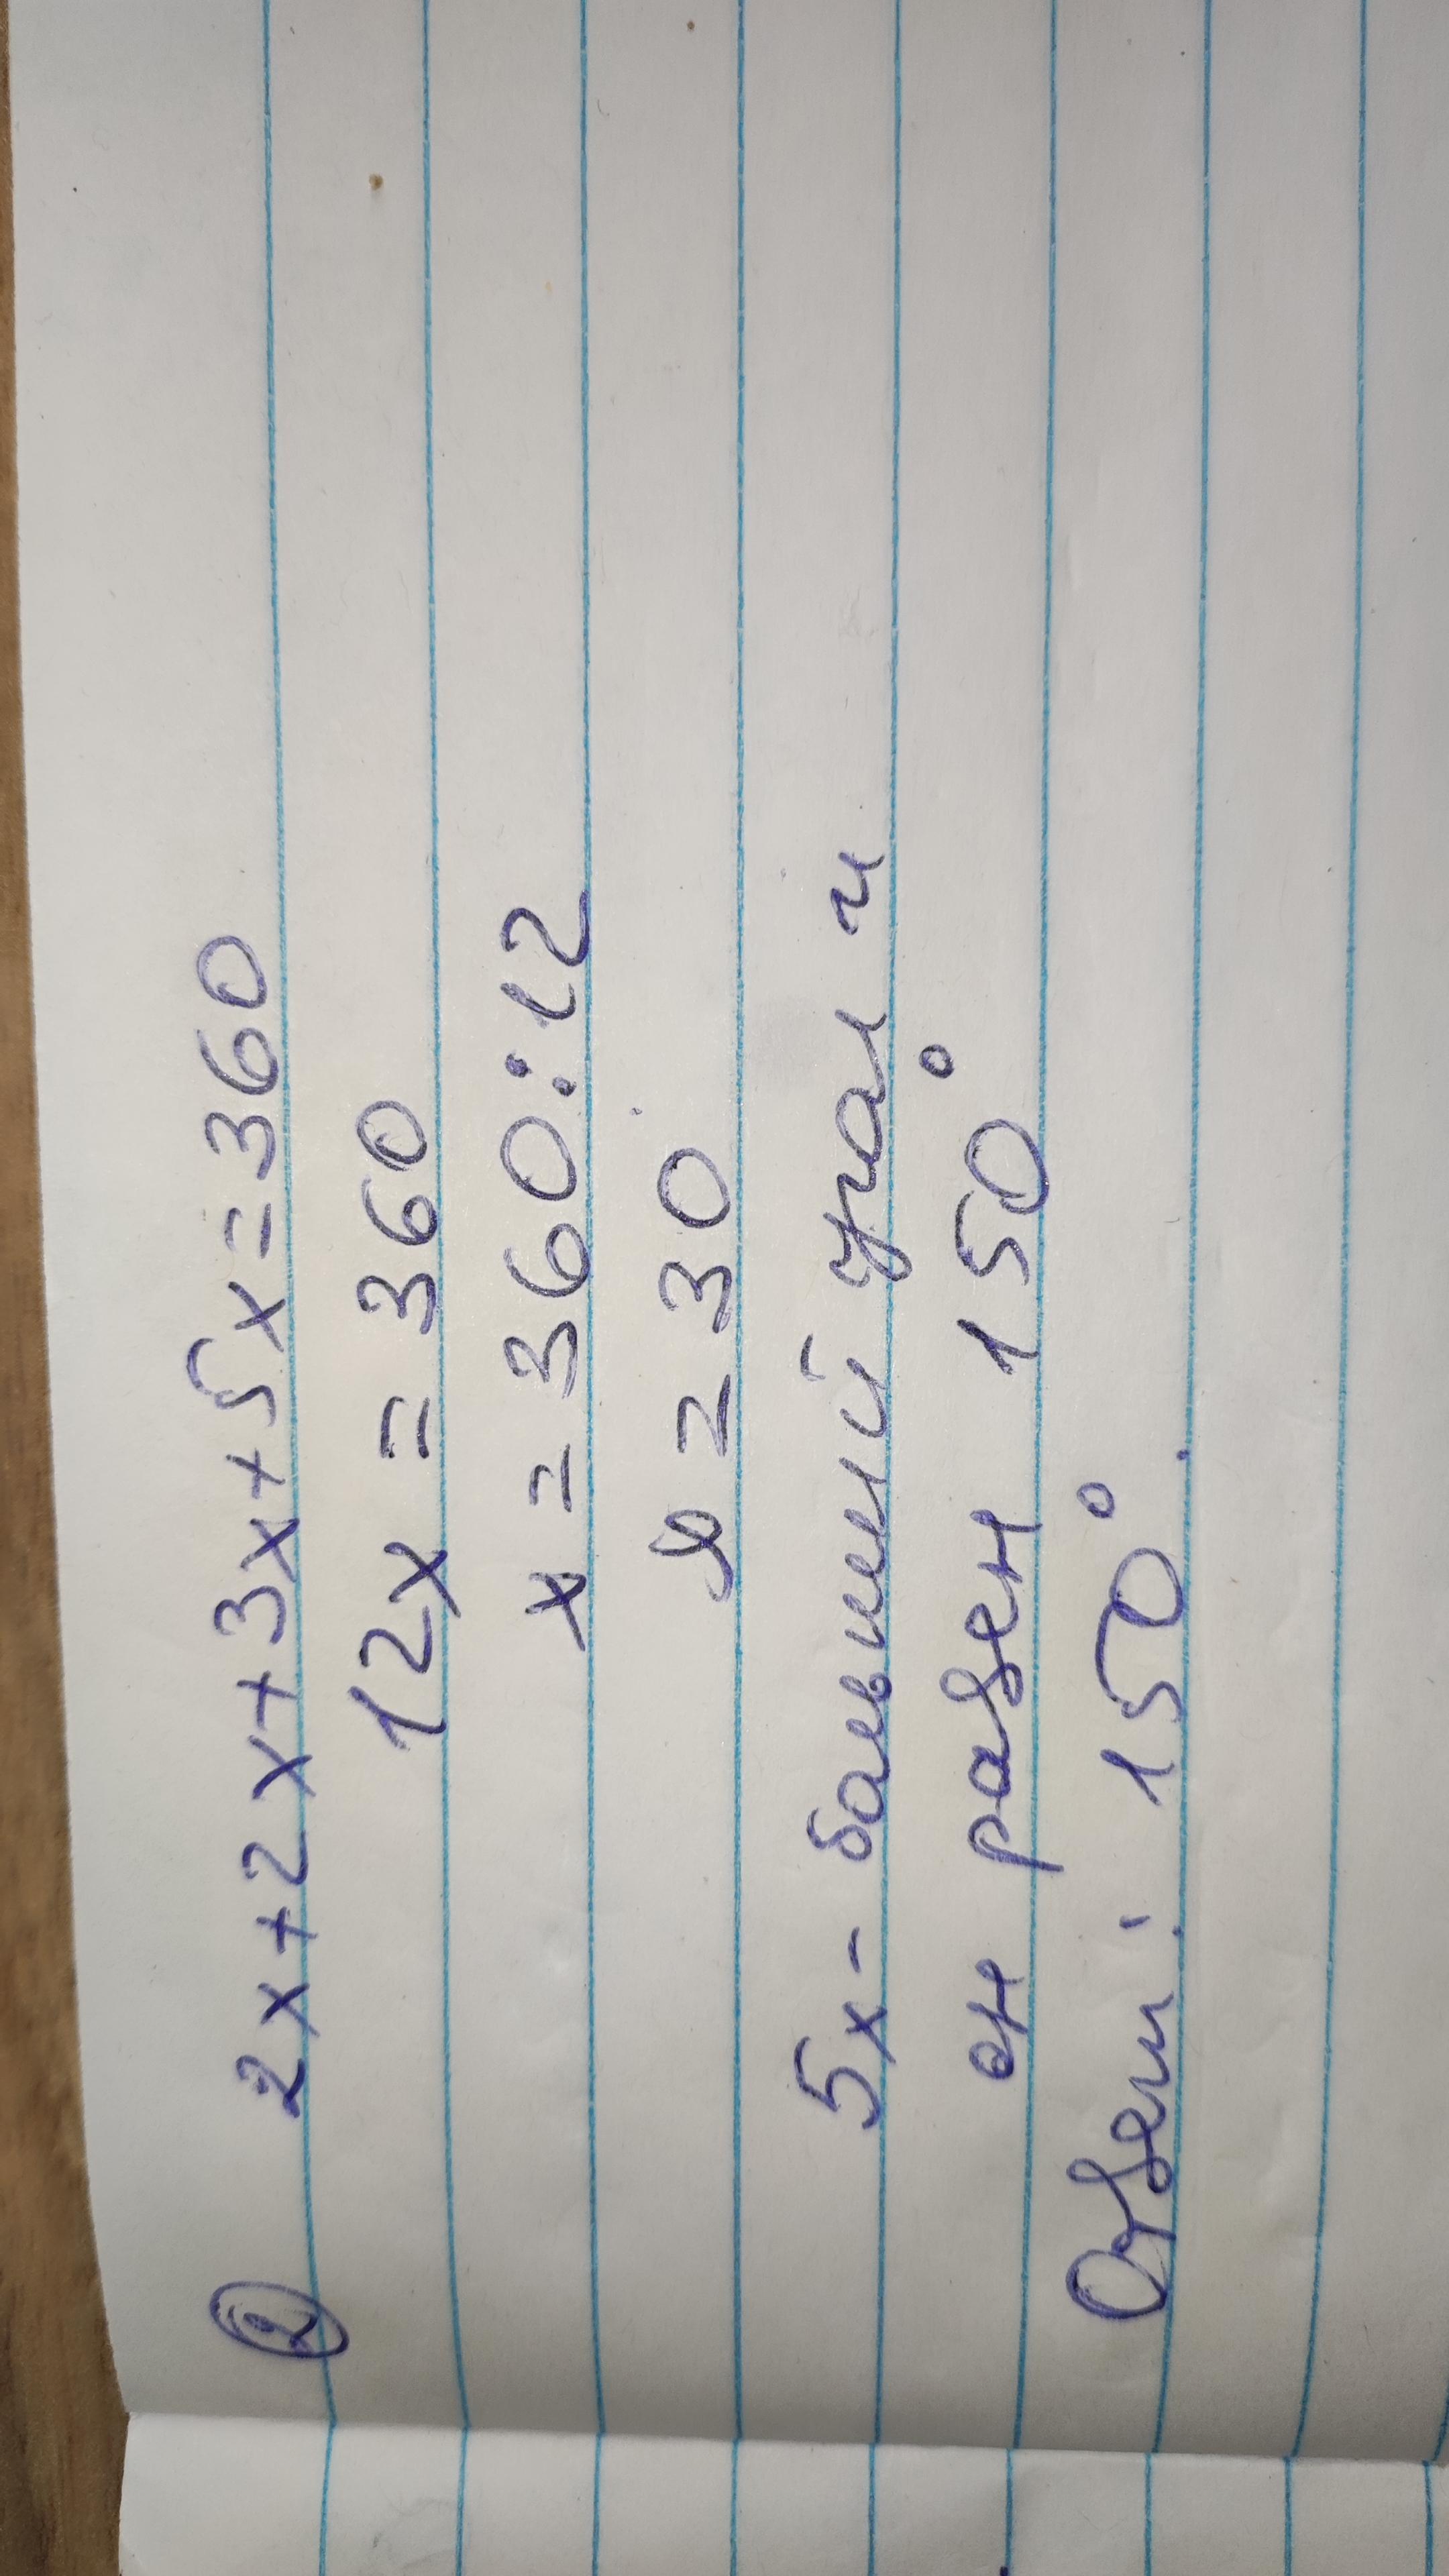 ② 2x+2x+3x+5x=360
12x = 360
x = 360:12
x = 30
5x - больший угол и
он равен 150°
Ответ: 150°.